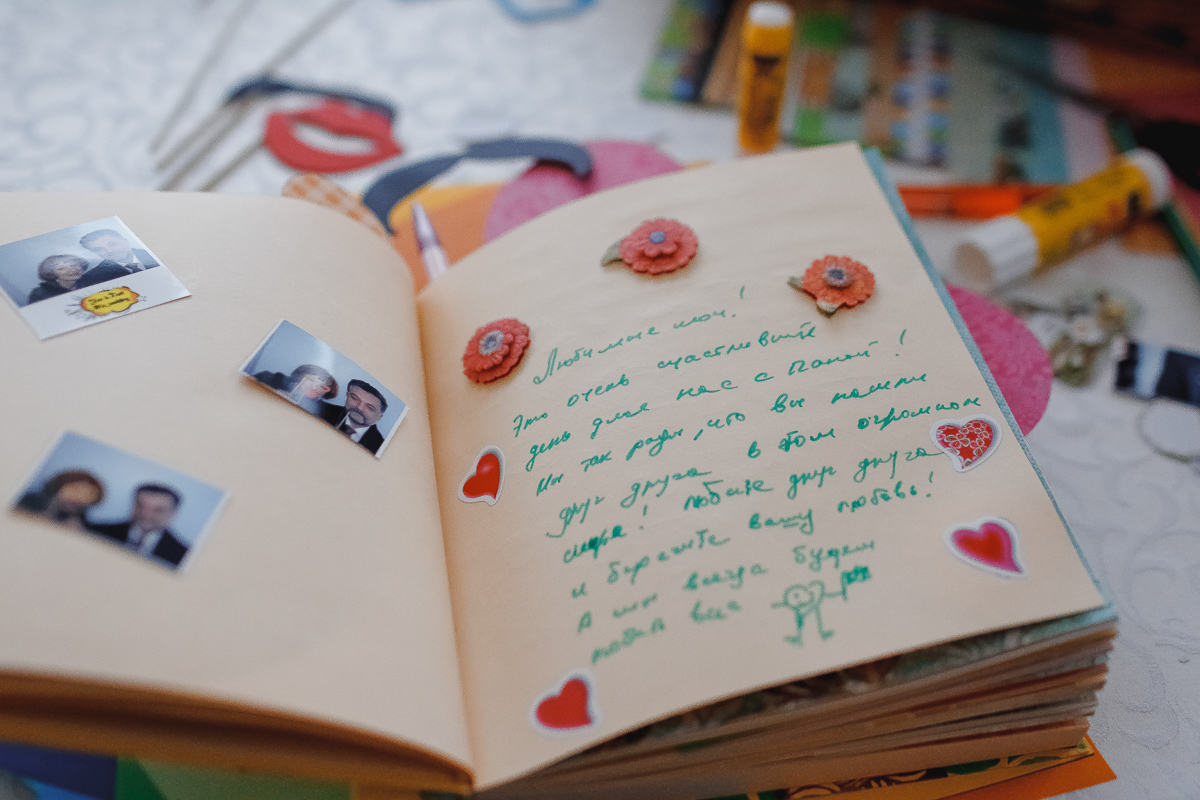 Любимые мои!
Это очень счастливый
день для нас с Папой!
Мы так рады, что вы нашли
друг друга в этом огромном
мире! Любите друг друга
и берегите вашу любовь!
А мы всегда будем
любить вас